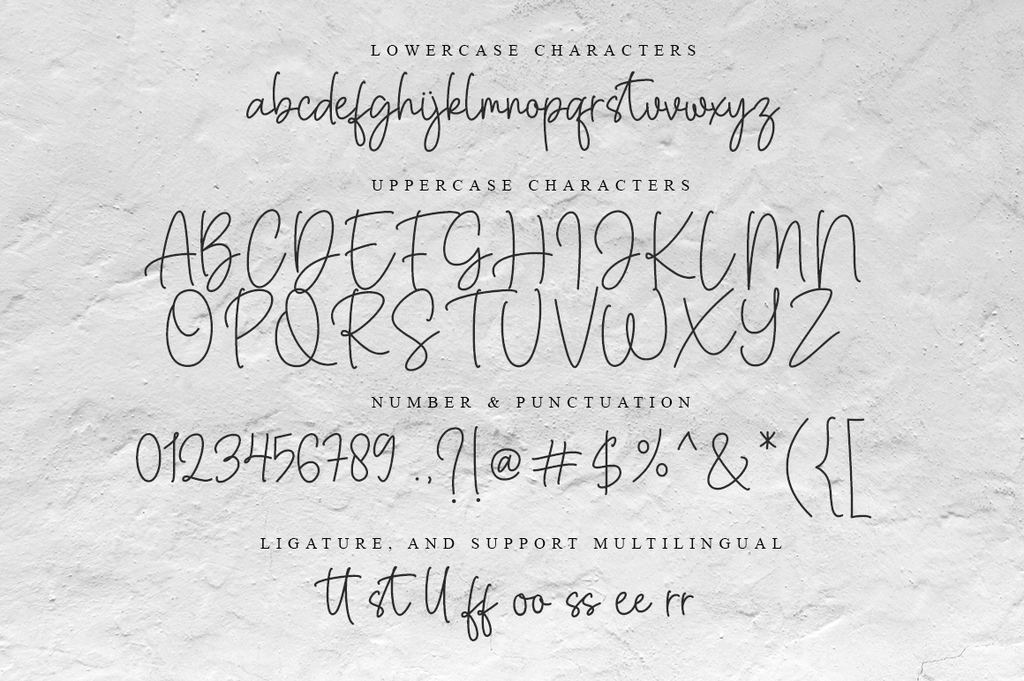 LOWERCASE CHARACTERS
abcdefghijklmnopqrstuvwxyz
UPPERCASE CHARACTERS
ABCDEFGHIJKLMN
OPQRSTUVWXYZ
NUMBER & PUNCTUATION
0123456789 .,?!@#$%^&*({[
LIGATURE, AND SUPPORT MULTILINGUAL
tt st ll ff oo ss ee rr